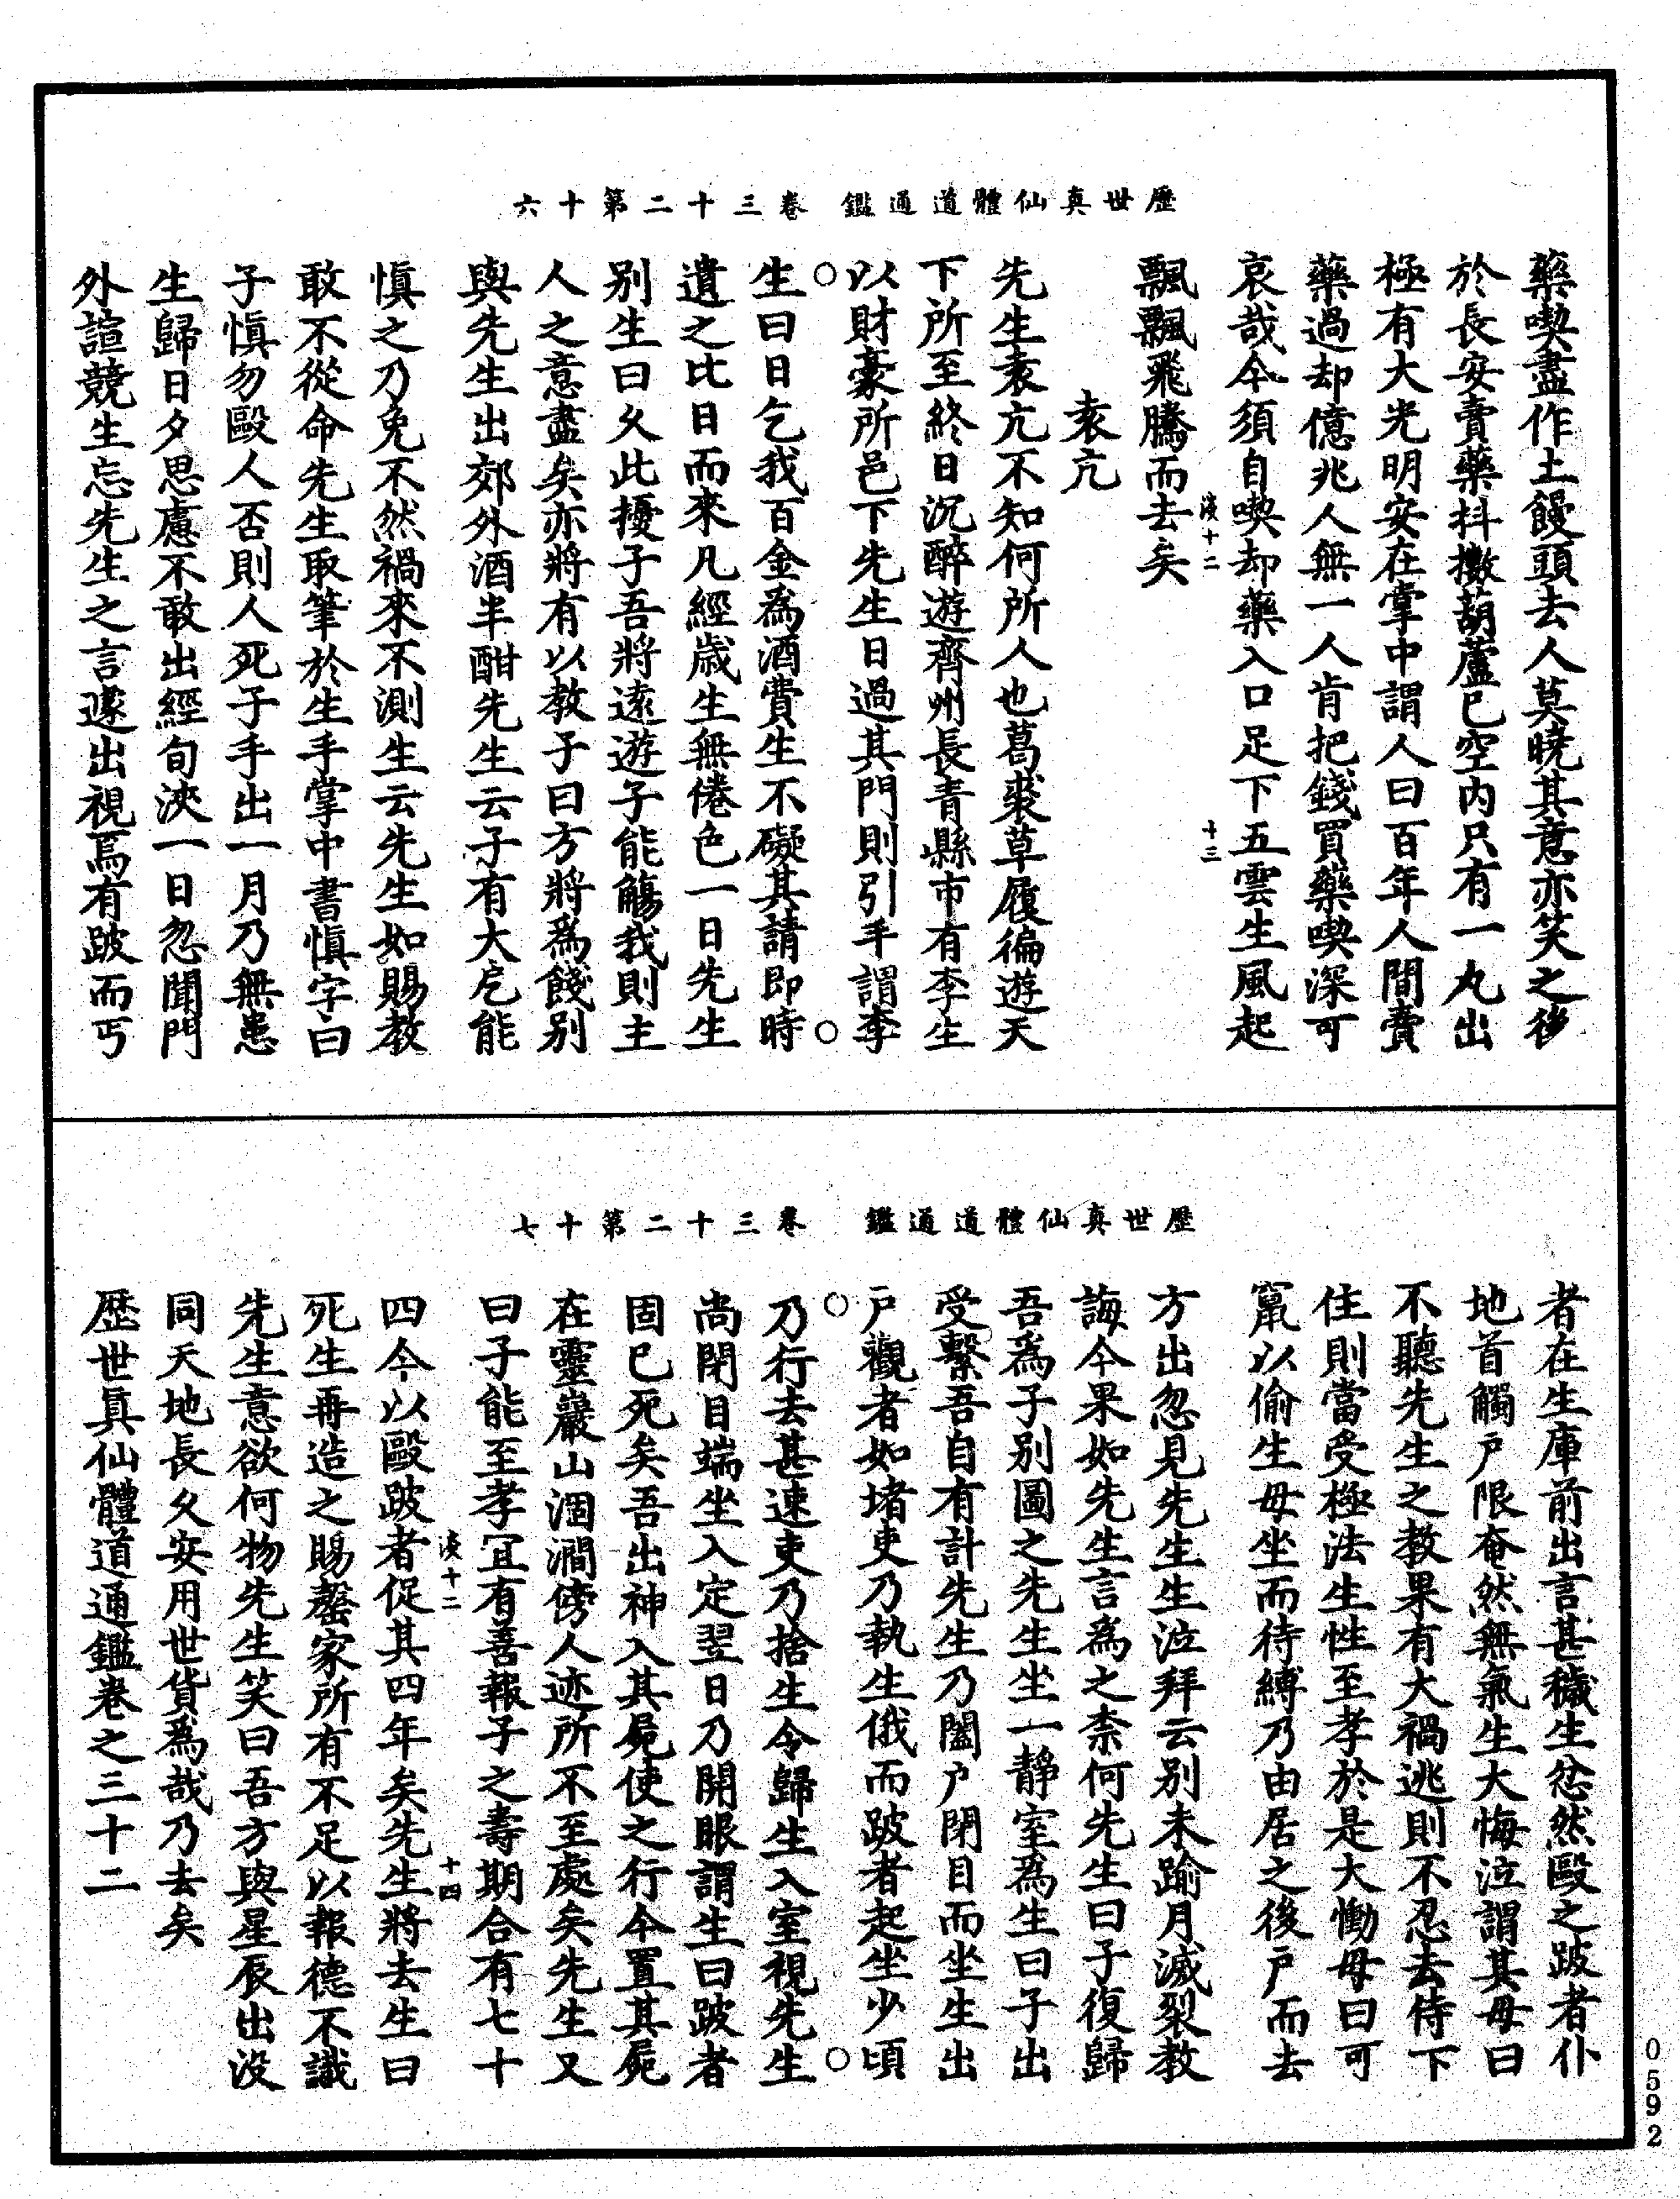 歷世真仙體道通鑑　卷三十二第十六
藥喫盡作土饅頭去人莫曉其意亦笑之後
於長安賣藥抖擻葫蘆已空內只有一丸出
極有大光明安在掌中謂人曰百年人間賣
藥過却億兆人無一人肯把錢買藥喫深可
哀哉今須自喫却藥入口足下五雲生風起
淡十二
十三
飄飄飛騰而去矣
袁亢
先生袁亢不知何所人也葛裘草履徧遊天
下所至終日沉醉遊齊州長青縣市有李生
以財豪所邑下先生日過其門則引手謂李
生曰日乞我百金為酒費生不礙其請即時
遺之比日而來凡經歲生無倦色一日先生
别生曰久此擾子吾將遠遊子能觴我則主
人之意盡矣亦將有以教子曰方將為餞别
與先生出郊外酒半酣先生云子有大戹能
慎之乃免不然禍來不測生云先生如賜教
敢不從命先生取筆於生手掌中書慎字曰
子慎勿毆人否則人死子手出一月乃無患
生歸日夕思慮不敢出經旬浹一日忽聞門
外諠競生忘先生之言遽出視焉有跛而丐
歷世真仙體道通鑑　卷三十二第十七
者在生庫前出言甚穢生忿然毆之跛者仆
地首觸戶限奄然無氣生大悔泣謂其母曰
不聽先生之教果有大禍逃則不忍去侍下
住則當受極法生性至孝於是大慟母曰可
竄以偷生母坐而待縛乃由居之後戶而去
方出忽見先生生泣拜云别未踰月滅裂教
誨今果如先生言為之柰何先生曰子復歸
吾為子别圖之先生坐一靜室為生曰子出
受繫吾自有計先生乃闔戶閉目而坐生出
戶觀者如堵吏乃執生俄而跛者起坐少頃
乃行去甚速吏乃捨生令歸生入室視先生
尚閉目端坐入定翌日乃開眼謂生曰跛者
固已死矣吾出神入其屍使之行今置其屍
在靈巖山涸澗傍人迹所不至處矣先生又
曰子能至孝冝有善報子之壽期合有七十
淡十二
十四
四今以毆跛者促其四年矣先生將去生曰
死生再造之賜罄家所有不足以報德不識
先生意欲何物先生笑曰吾方與星辰出沒
同天地長久安用世貨為哉乃去矣
歷世真仙體道通鑑卷之三十二
0592